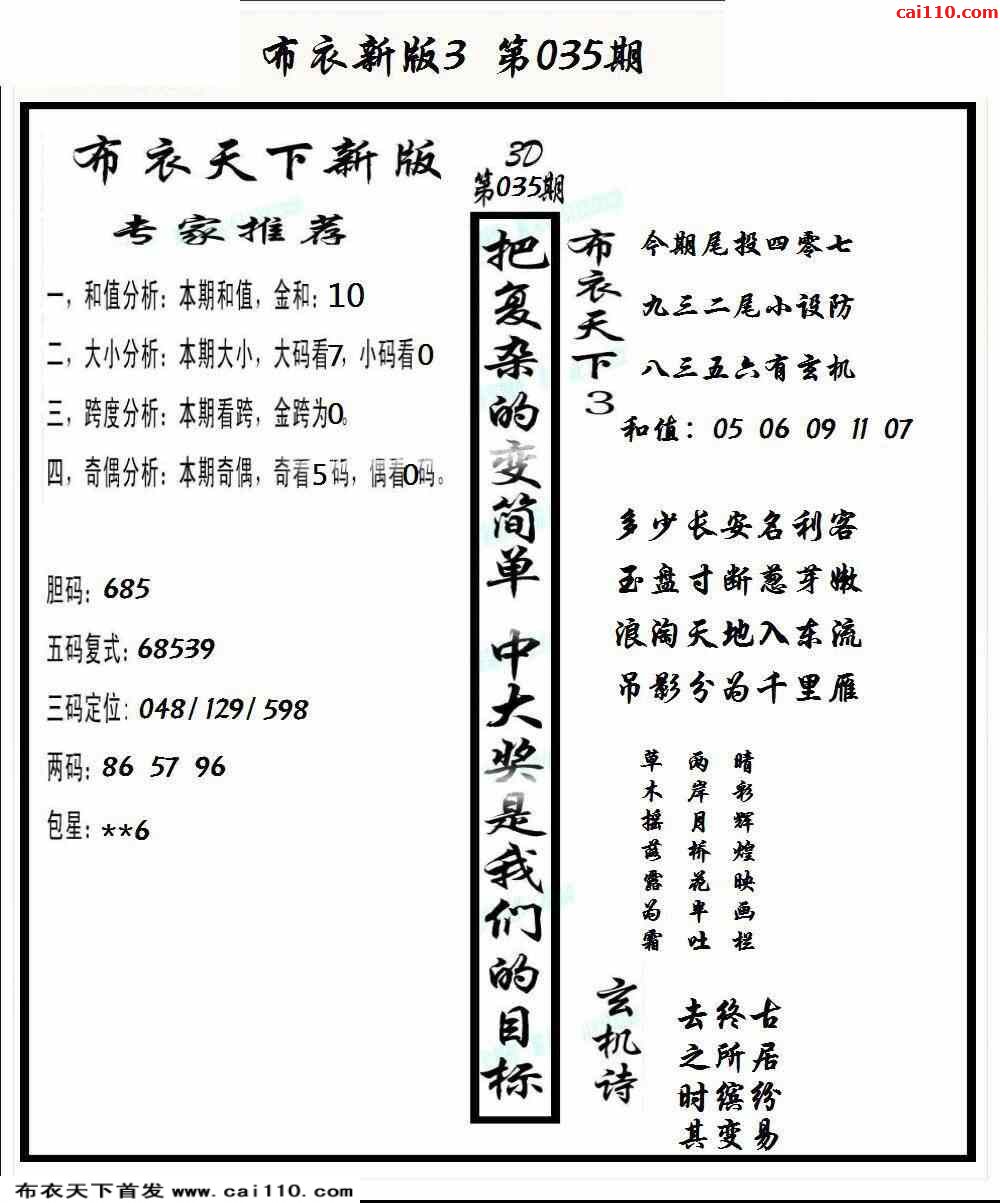 cai110.com
布衣新版3 第035期
布衣天下新版
专家推荐
一，和值分析：本期和值，金和：10
二，大小分析：本期大小，大码看7，小码看0
三，跨度分析：本期看跨，金跨为0。
四，奇偶分析：本期奇偶，奇看5码，偶看0码。
胆码：685
五码复式：68539
三码定位：048/129/598
两码：86 57 96
包星：**6
3D
第035期
把复杂的变简单 中大奖是我们的目标
布衣天下3
今期尾投四零七
九三二尾小设防
八三五六有玄机
和值：05 06 09 11 07
多少长安名利客
玉盘寸断葱芽嫩
浪淘天地入东流
吊影分为千里雁
晴彩辉煌映画栏
两岸月桥花半吐
草木摇落露为霜
玄机诗
古居纷易
终所缤变
去之时其
布衣天下首发 www.cai110.com